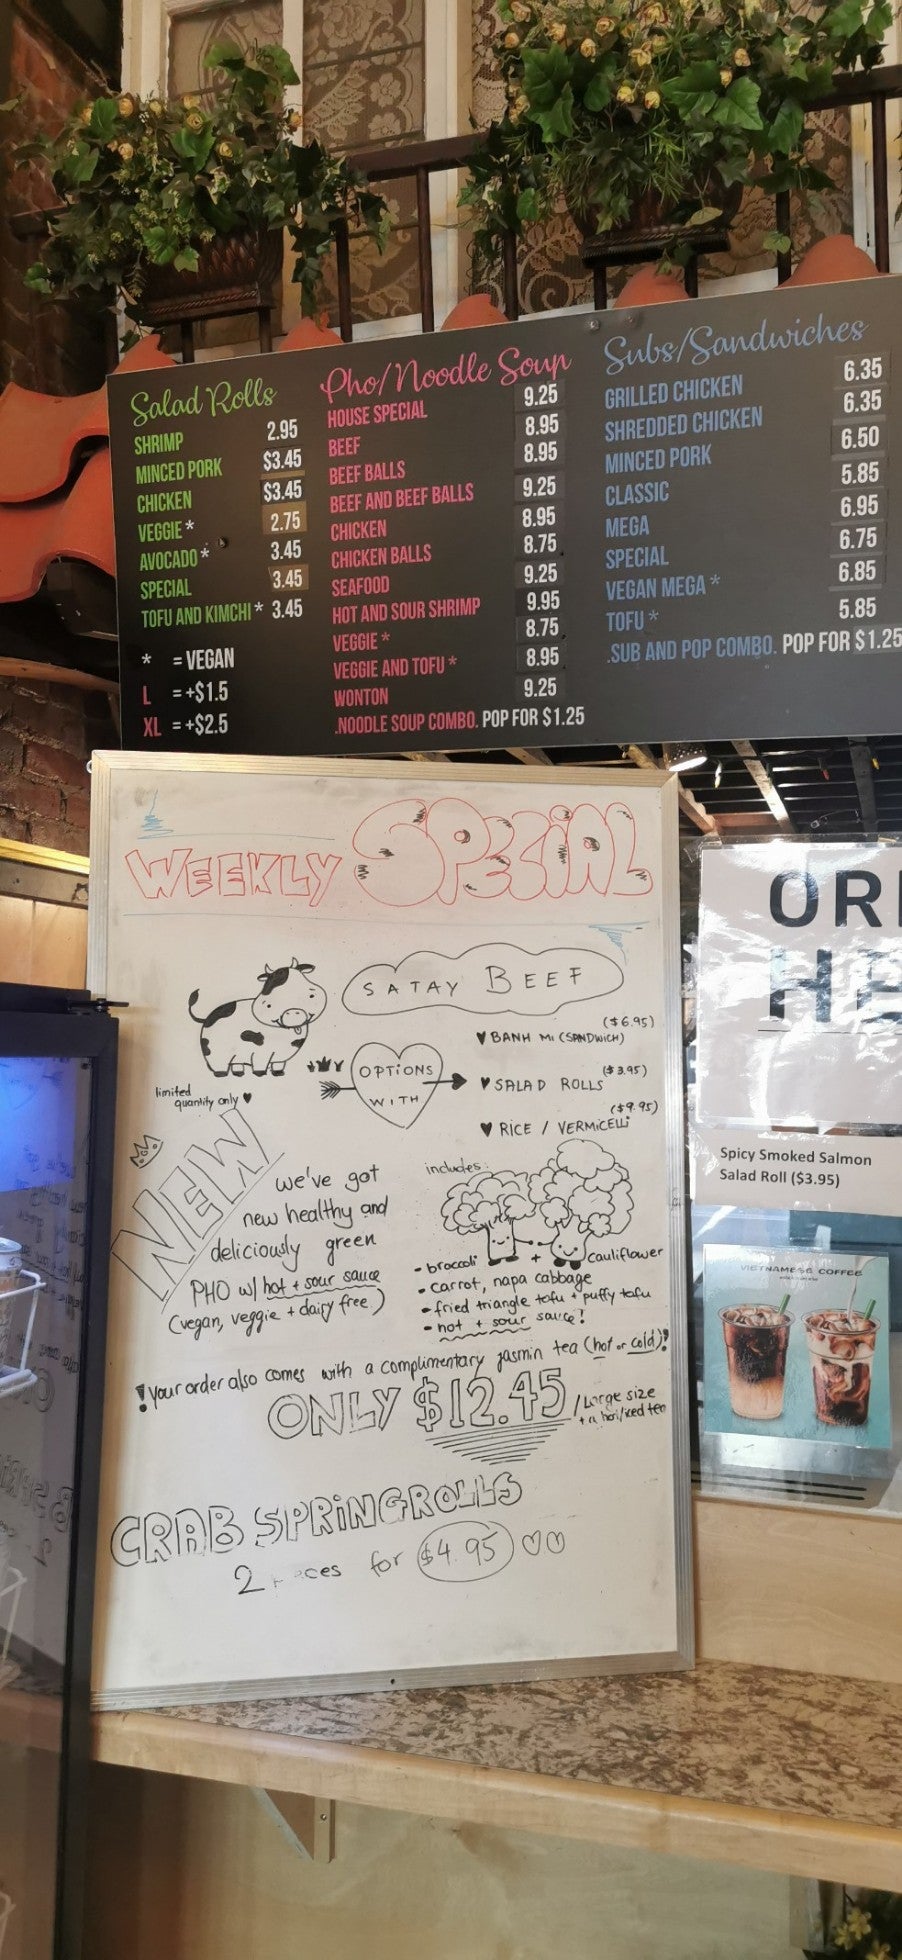 Salad Rolls
SHRIMP 2.95
MINCED PORK $3.45
CHICKEN $3.45
VEGGIE * 2.75
AVOCADO * 3.45
SPECIAL 3.45
TOFU AND KIMCHI * 3.45
* = VEGAN
L = +$1.5
XL = +$2.5
Pho/Noodle Soup
HOUSE SPECIAL 9.25
BEEF 8.95
BEEF BALLS 8.95
BEEF AND BEEF BALLS 9.25
CHICKEN 8.95
CHICKEN BALLS 8.75
SEAFOOD 9.25
HOT AND SOUR SHRIMP 9.95
VEGGIE * 8.75
VEGGIE AND TOFU * 8.95
WONTON 9.25
.NOODLE SOUP COMBO. POP FOR $1.25
Subs/Sandwiches
GRILLED CHICKEN 6.35
SHREDDED CHICKEN 6.35
MINCED PORK 6.50
CLASSIC 5.85
MEGA 6.95
SPECIAL 6.75
VEGAN MEGA * 6.85
TOFU * 5.85
.SUB AND POP COMBO. POP FOR $1.25
WEEKLY SPECIAL
SATAY BEEF
limited
quantity only ♥
OPTIONS
WITH
($6.95)
♥ BANH MI (SANDWICH)
($3.95)
♥ SALAD ROLLS
($9.95)
♥ RICE / VERMICELLI
NEW
we've got
new healthy and
deliciously green
PHO w/ hot + sour sauce
(vegan, veggie + dairy free)
includes:
- broccoli + cauliflower
- carrot, napa cabbage
- fried triangle tofu + puffy tofu
- hot + sour sauce!
! Your order also comes with a complimentary jasmin tea (hot or cold)!
ONLY $12.45 / Large size
+ a hot/iced tea
CRAB SPRINGROLLS
2 for $4.95 ♡♡
Spicy Smoked Salmon
Salad Roll ($3.95)
VIETNAMESE COFFEE